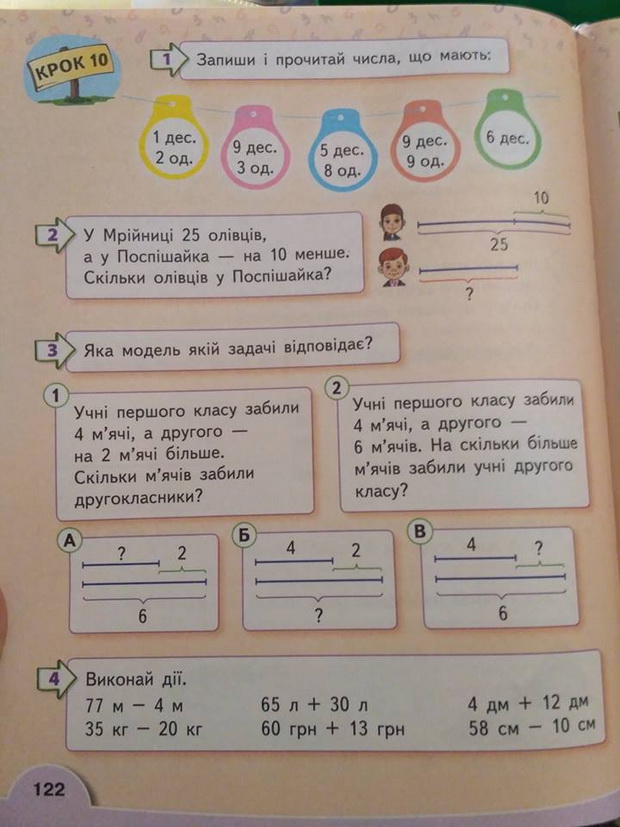 КРОК 10
1 Запиши і прочитай числа, що мають:
1 дес.
2 од.
9 дес.
3 од.
5 дес.
8 од.
9 дес.
9 од.
6 дес.
2 У Мрійниці 25 олівців,
а у Поспішайка — на 10 менше.
Скільки олівців у Поспішайка?
10
25
?
3 Яка модель якій задачі відповідає?
1
Учні першого класу забили
4 м'ячі, а другого —
на 2 м'ячі більше.
Скільки м'ячів забили
другокласники?
2
Учні першого класу забили
4 м'ячі, а другого —
6 м'ячів. На скільки більше
м'ячів забили учні другого
класу?
А
? 2
6
Б
4 2
?
В
4 ?
6
4 Виконай дії.
77 м − 4 м 65 л + 30 л 4 дм + 12 дм
35 кг − 20 кг 60 грн + 13 грн 58 см − 10 см
122